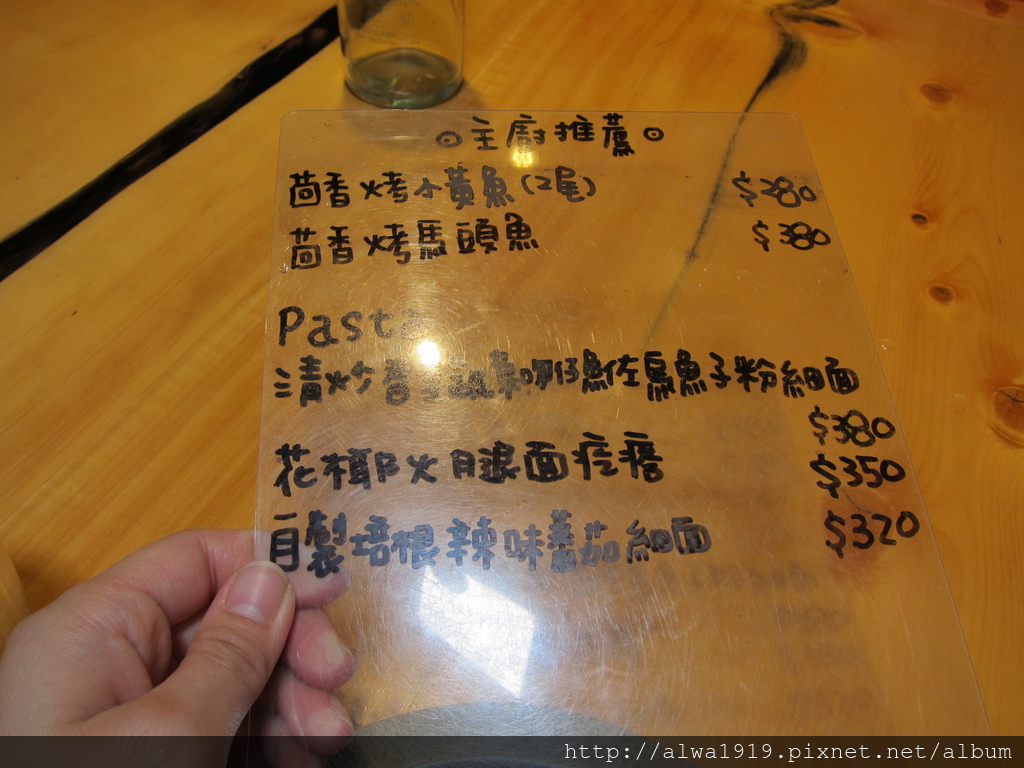 ⊙主廚推薦⊙
茴香烤小黃魚(2尾) $280
茴香烤馬頭魚 $380
Pasta
清炒香魚吻仔魚佐烏魚子粉細面
$380
花椰火腿面疙瘩 $350
自製培根辣味蕃茄細面 $320
http://alwa1919.pixnet.net/album